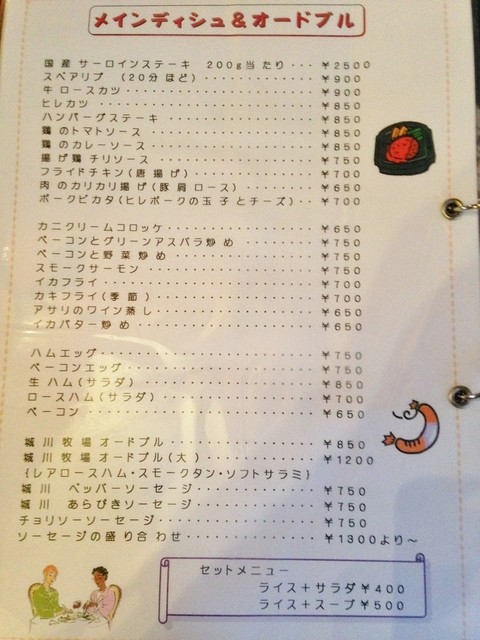 メインディシュ&オードブル
国産 サーロインステーキ 200g当たり・・・￥2500
スペアリブ (20分ほど)・・・・・・・・・・・・￥900
牛ロースカツ・・・・・・・・・・・・・・・・・・￥900
ヒレカツ・・・・・・・・・・・・・・・・・・・・￥850
ハンバーグステーキ・・・・・・・・・・・・・・・￥850
鶏のトマトソース・・・・・・・・・・・・・・・・￥850
鶏のカレーソース・・・・・・・・・・・・・・・・￥850
揚げ鶏チリソース・・・・・・・・・・・・・・・・￥750
フライドチキン(唐揚げ)・・・・・・・・・・・・￥700
肉のカリカリ揚げ(豚肩ロース)・・・・・・・・・￥650
ポークピカタ(ヒレポークの玉子とチーズ)・・￥700
カニクリームコロッケ・・・・・・・・・・・・・・￥650
ベーコンとグリーンアスパラ炒め・・・・・・・・・￥750
ベーコンと野菜炒め・・・・・・・・・・・・・・・￥750
スモークサーモン・・・・・・・・・・・・・・・・￥750
イカフライ・・・・・・・・・・・・・・・・・・・￥700
カキフライ(季節)・・・・・・・・・・・・・・・￥700
アサリのワイン蒸し・・・・・・・・・・・・・・・￥650
イカバター炒め・・・・・・・・・・・・・・・・・￥650
ハムエッグ・・・・・・・・・・・・・・・・・・・￥750
ベーコンエッグ・・・・・・・・・・・・・・・・・￥750
生ハム(サラダ)・・・・・・・・・・・・・・・・￥850
ロースハム(サラダ)・・・・・・・・・・・・・・￥700
ベーコン・・・・・・・・・・・・・・・・・・・・￥650
城川牧場オードブル・・・・・・・・・・・・・・・￥850
城川牧場オードブル(大)・・・・・・・・・・・・￥1200
{レアロースハム・スモークタン・ソフトサラミ}
城川 ペッパーソーセージ・・・・・・・・・・・・￥750
城川 あらびきソーセージ・・・・・・・・・・・・￥750
チョリソーソーセージ・・・・・・・・・・・・・・￥750
ソーセージの盛り合わせ・・・・・・・・・・・・・￥1300より～
セットメニュー
ライス+サラダ￥400
ライス+スープ￥500